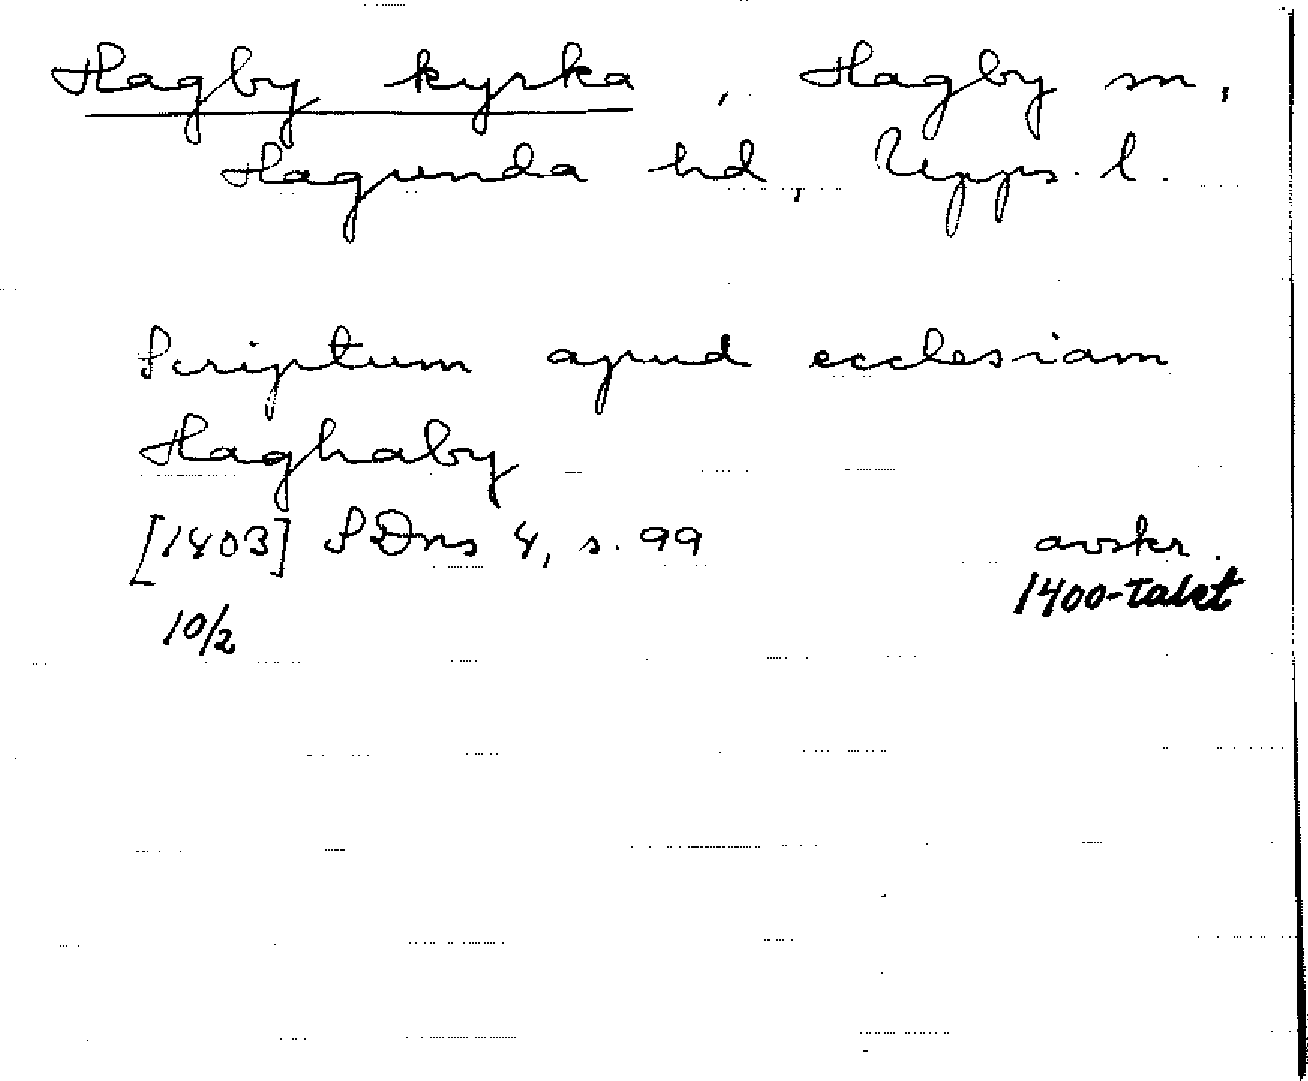 Hagby kyrka, Hagby sn,
Hagunda hd, Upps. l.
Scriptum apud ecclesiam
Haghaby
[1403] SDns 4, s. 99 avskr.
10/2 1400-talet